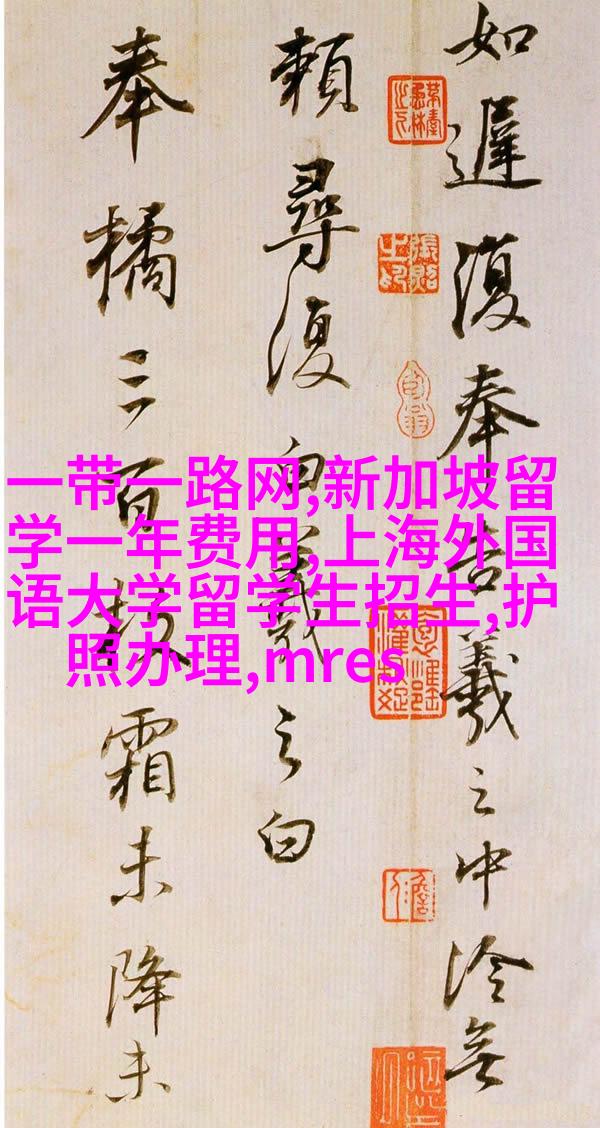 如遲復奉告羲之中冷無
賴尋復白羲之白
奉橘三百枚霜未降未
一带一路网,新加坡留
学一年费用,上海外国
语大学留学生招生,护
照办理,mres